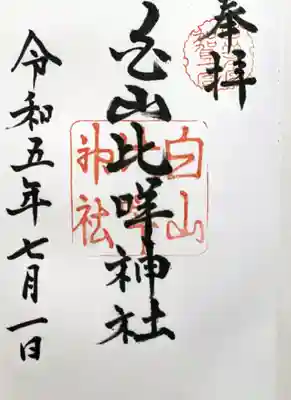 奉拝
白山比咩神社
白山
神社
令和五年七月一日